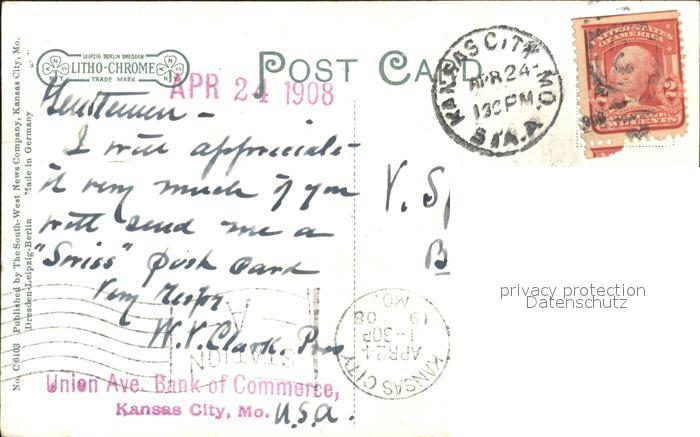 No. C 6103 Published by The South-West News Company, Kansas City, Mo.
Dresden-Leipzig-Berlin Made in Germany
LEIPZIG BERLIN DRESDEN
LITHO-CHROME
TRADE MARK
POST CARD
APR 24 1908
KANSAS CITY, MO.
APR 24
130 PM
STA. A
UNITED STATES
OF AMERICA
2 2
CENTS
Gentlemen –
I will appreciate
it very much if you
will send me a
"Swiss" Post Card
Very Respy
W. V. Clark, Pres
Union Ave. Bank of Commerce,
Kansas City, Mo.
U.S.A.
V. Sp
B
KANSAS CITY
MO.
APR 24
1-30P
19 08
STATION
A
privacy protection
Datenschutz